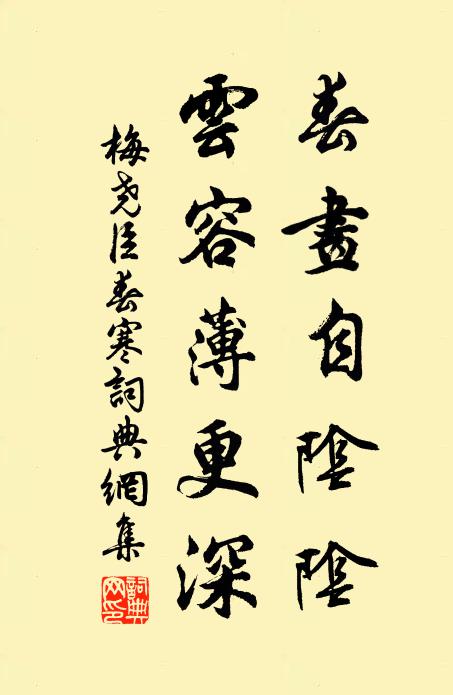 春晝自陰陰
雲容薄更深
梅尧臣春寒詞典網集
詞典
网印